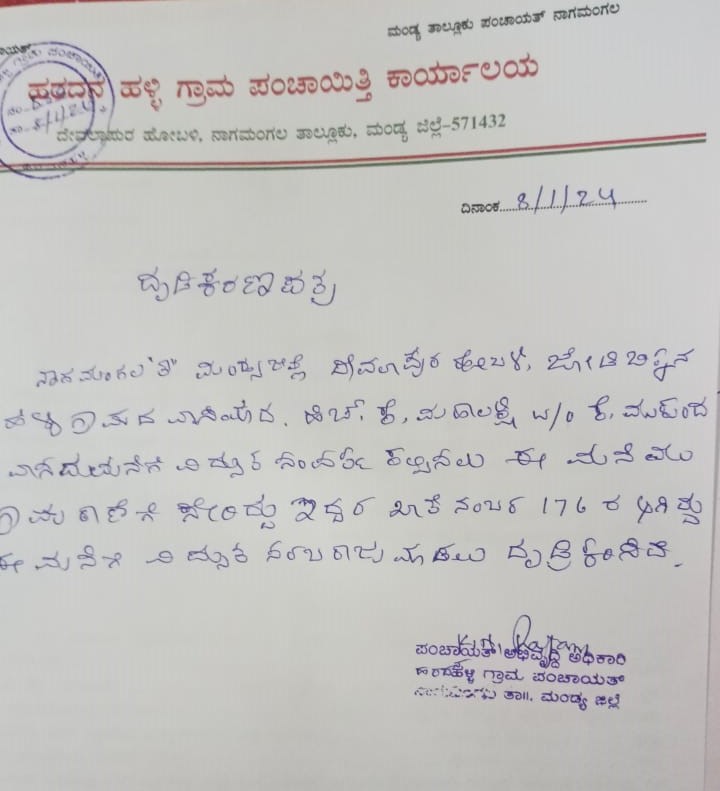 ಮಂಡ್ಯ ತಾಲ್ಲೂಕು ಪಂಚಾಯತ್ ನಾಗಮಂಗಲ
ಹರದನ ಹಳ್ಳಿ ಗ್ರಾಮ ಪಂಚಾಯಿತ್ತಿ ಕಾರ್ಯಾಲಯ
8/1/24
ದೇವಲಾಪುರ ಹೋಬಳಿ, ನಾಗಮಂಗಲ ತಾಲ್ಲೂಕು, ಮಂಡ್ಯ ಜಿಲ್ಲೆ-571432
ದಿನಾಂಕ 8/1/24
ದೃಢಿಕರಣ ಪತ್ರ
ನಾಗಮಂಗಲ "ತಾ" ಮಂಡ್ಯ ಜಿಲ್ಲೆ ದೇವಲಾಪುರ ಹೋಬಳಿ,
ಹಳ್ಳಿ ಗ್ರಾಮದ ವಾಸಿಯಾದ. ಹೆಚ್. ಕೆ, ಮಹಾಲಕ್ಷ್ಮಿ w/o ಕೆ, ಮುಕುಂದ
ವಾಸದಮನೆಗೆ ವಿದ್ಯುತ ಸಂಪರ್ಕ ಕಲ್ಪಿಸಲು ಈ ಮನೆಯು
ಗ್ರಾಮ ಠಾಣೆಗೆ ಸೇರಿದ್ದು ಇದ್ದರ ಖಾತೆ ನಂಬರ 176 ರ
ಈ ಮನೆಗೆ ವಿದ್ಯುತ ಸರಬರಾಜು ಮಾಡಲು ದೃಢಿಕರಿಸಿದೆ.
ಪಂಚಾಯತ್ ಅಭಿವೃದ್ಧಿ ಅಧಿಕಾರಿ
ಹರದನಹಳ್ಳಿ ಗ್ರಾಮ ಪಂಚಾಯತ್
ನಾಗಮಂಗಲ ತಾ॥, ಮಂಡ್ಯ ಜಿಲ್ಲೆ